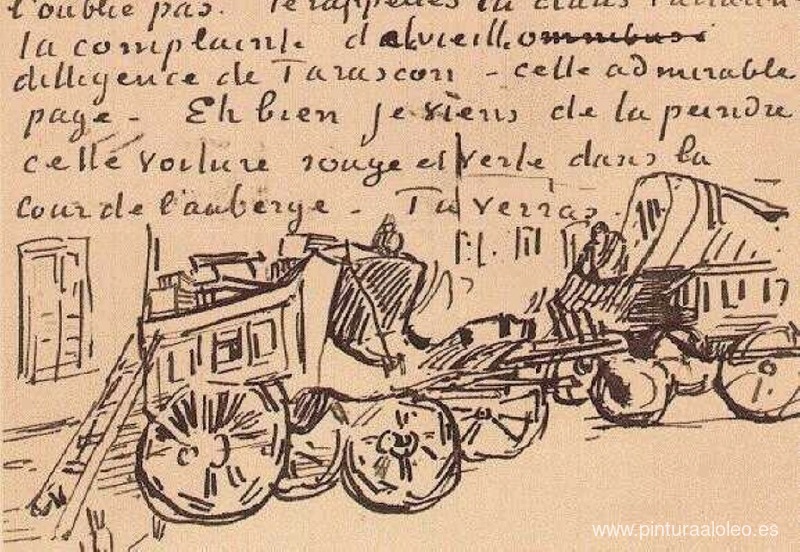 l'oublie pas. Te rappelles tu dans
la complainte d la vieille omnibus
dilligence de Tarascon - celle admirable
page - Eh bien je viens de la peindre
cette voiture rouge et verte dans la
cour de l'auberge - Tu verras.
www.pinturaaloleo.es